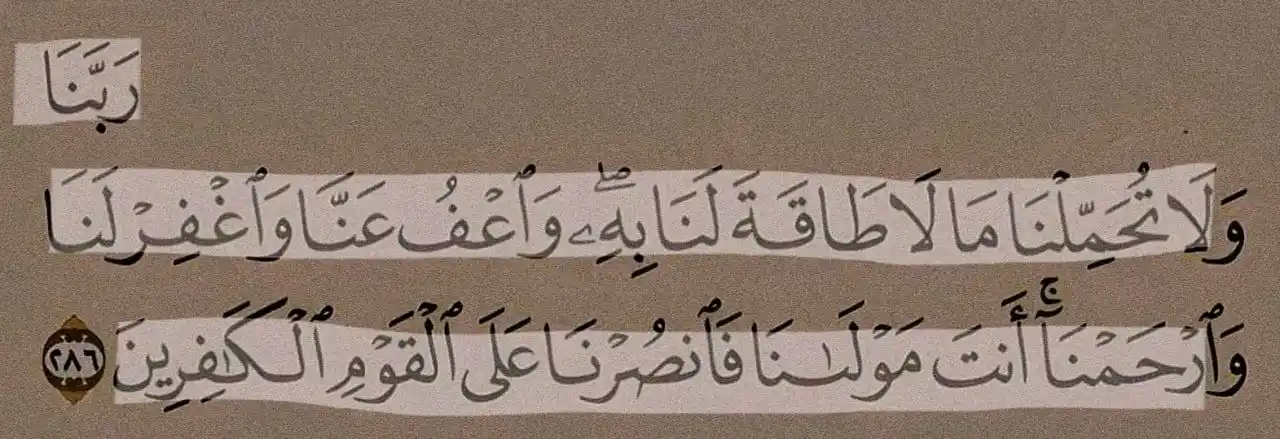 رَبَّنَا
وَلَا تُحَمِّلْنَا مَا لَا طَاقَةَ لَنَا بِهِۦۖ وَٱعْفُ عَنَّا وَٱغْفِرْ لَنَا
وَٱرْحَمْنَآۚ أَنتَ مَوْلَىٰنَا فَٱنصُرْنَا عَلَى ٱلْقَوْمِ ٱلْكَٰفِرِينَ ٢٨٦